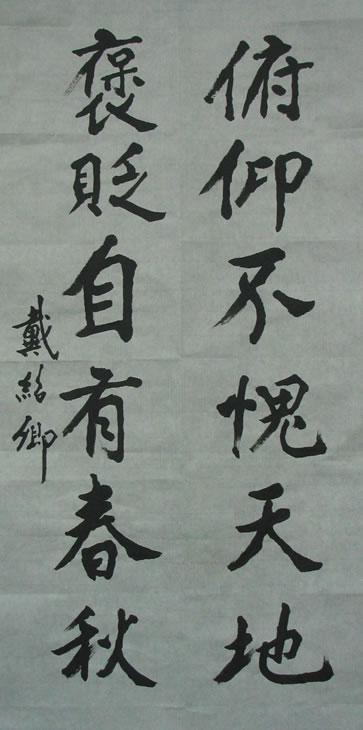 俯仰不愧天地
褒贬自有春秋
戴紹卿